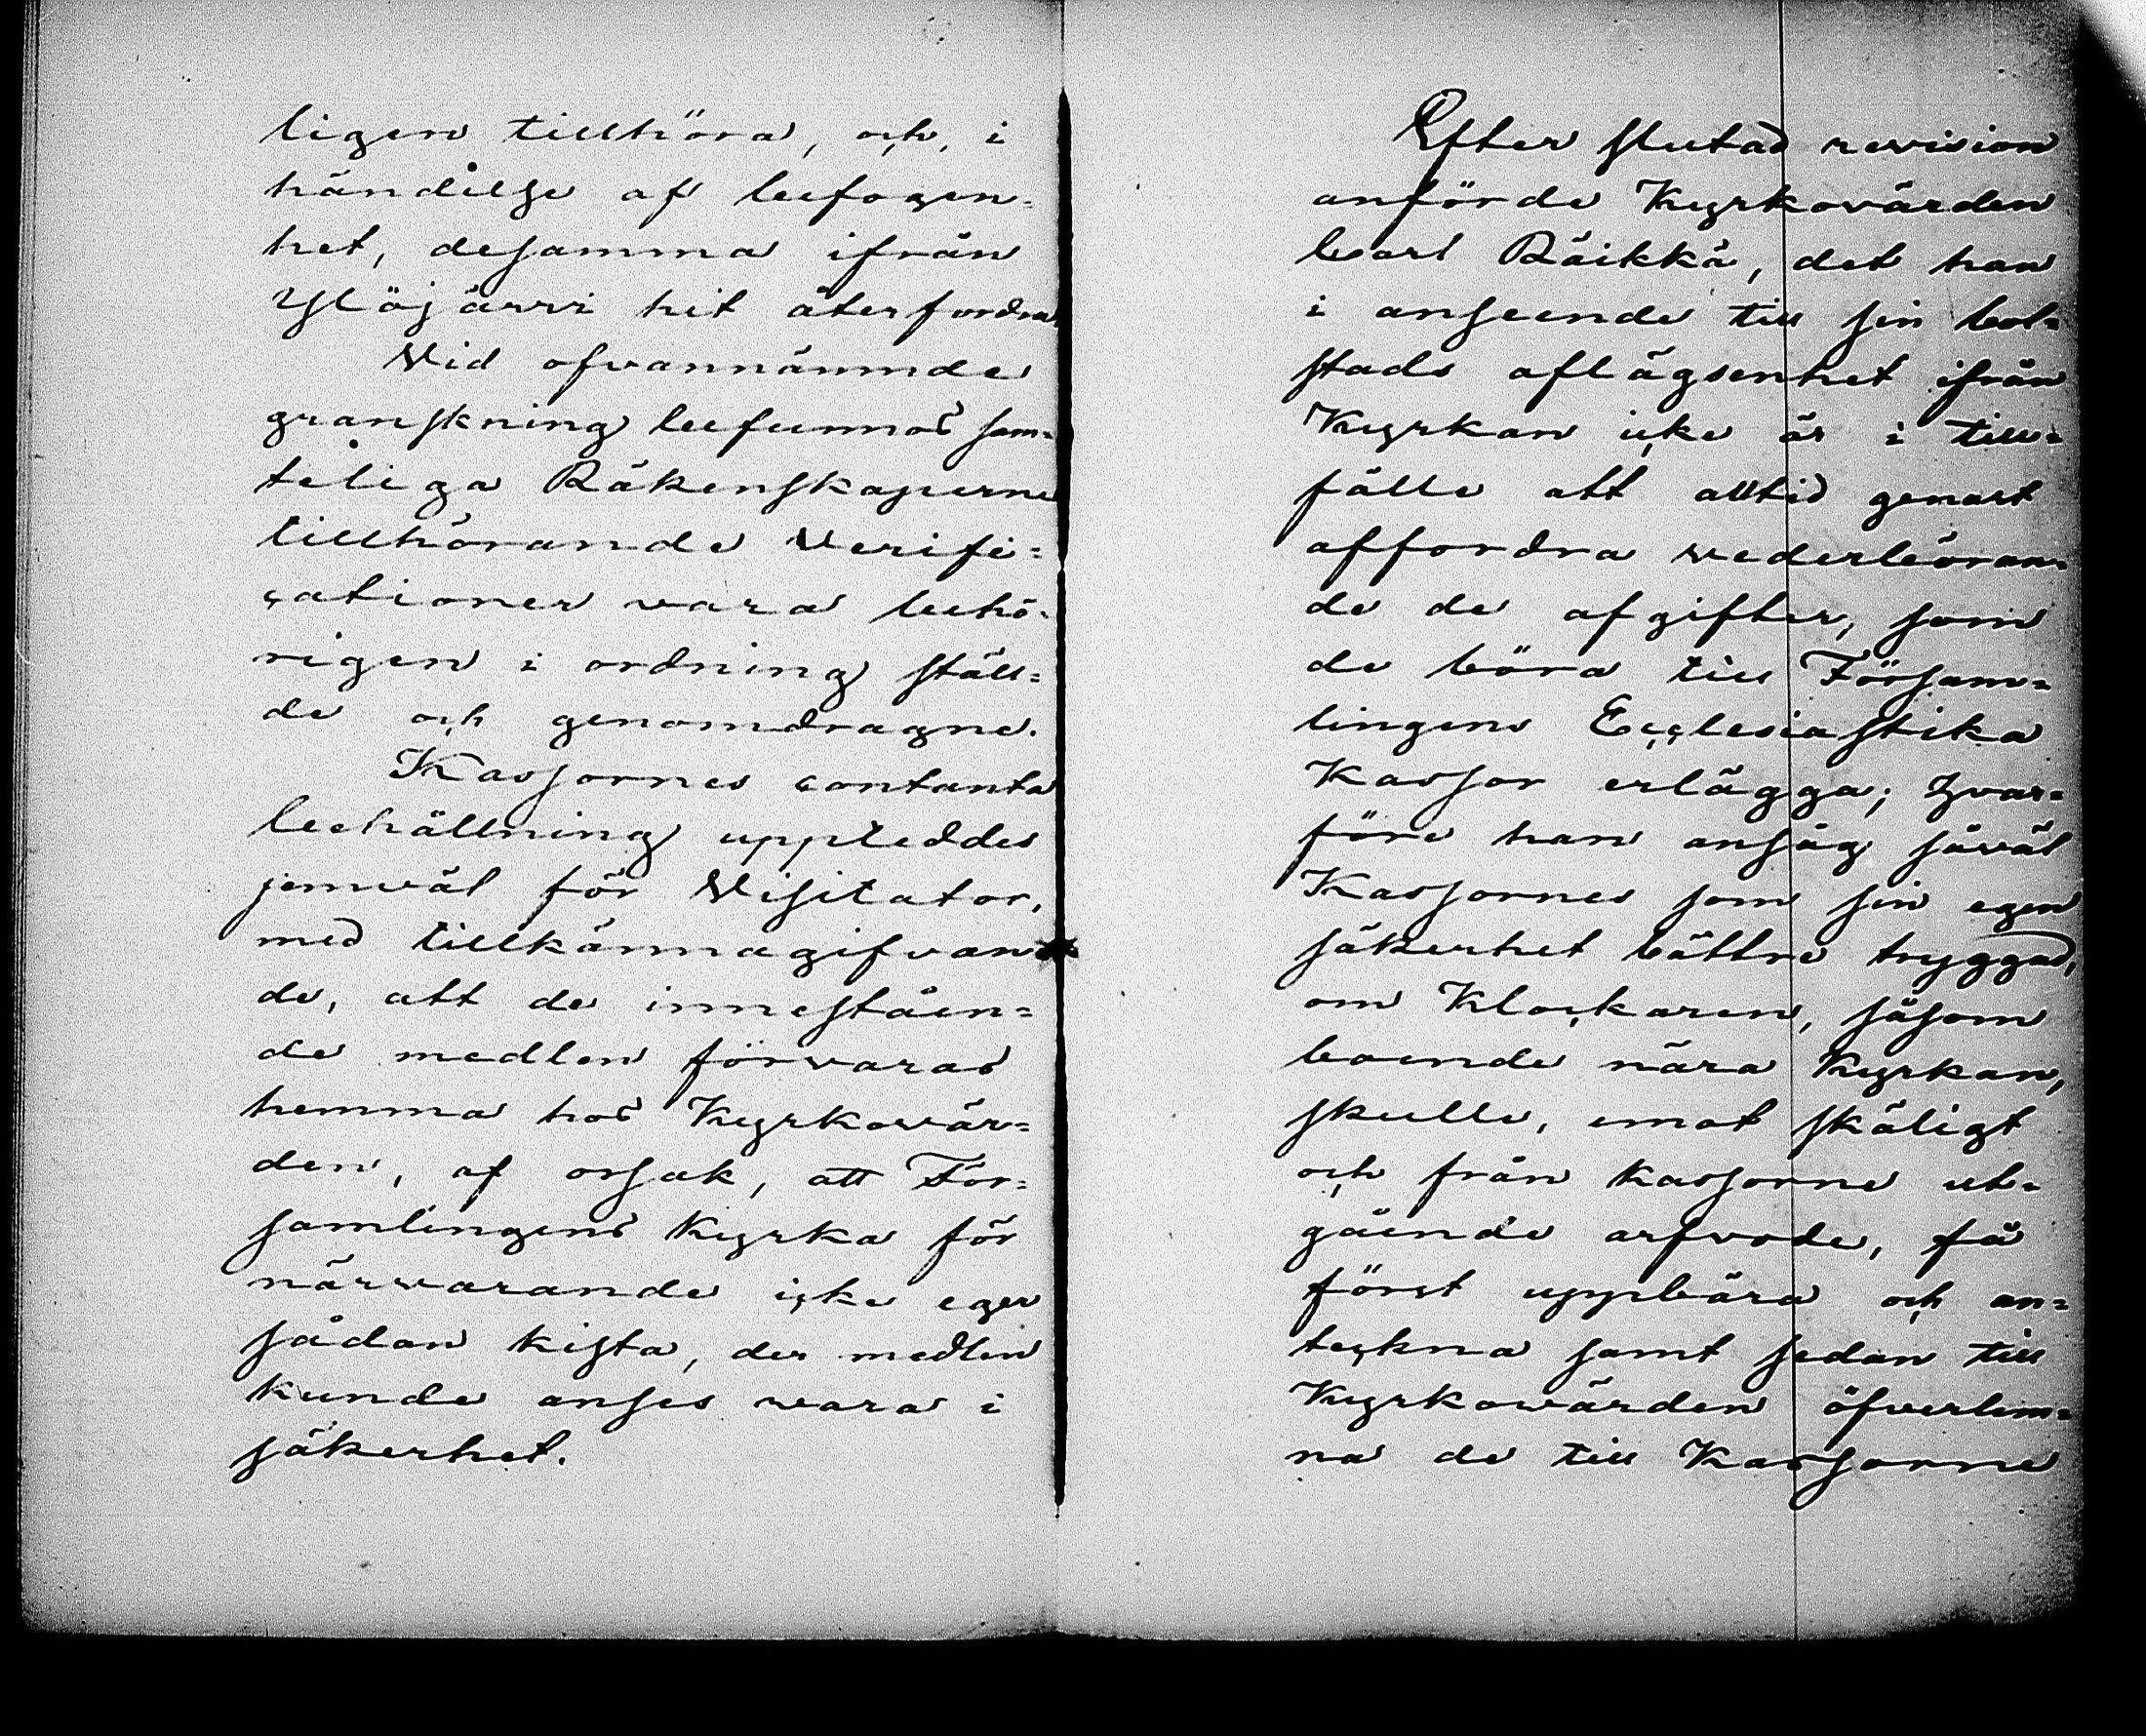 ligen tillhöra, och, i
händelse af befogen-
het, desamma ifrån
Ylöjärvi hit återfordra
Vid ofvannämnde
granskning befunnos sam-
teliga Räkenskaperne
tillhörande Verifi-
cationer vara behö-
rigen i ordning ställ-
de och genomdragne.
Kassornes contanta
behållning uppteddes
jemväl för Visitator,
med tillkännagifvan
de, att de innestäen-
de medlen förvaras
hemma hos Kyrkovär-
den, af orsak, att För-
samlingens Kyrka för
närvarande icke eger
sådan kista, der medlen
kunde anses vara i
säkerhet.
Efter slutad revision
anförde Kyrkovärden
Carl Räikkä, det han
i anseende till sin bol-
stads aflägsenhet ifrån
Kyrkan icke är i till-
fälle att alltid genast
affordra vederböran-
de de afgifter, som
de böra till Försam-
lingens Ecclesiastika
Kassor erlägga; hvar-
före han ansåg såväl
Kassornes som sin egen
säkerhet bättre tryggad,
om Klockaren, såsom
boende nära Kyrkan,
skulle, emot skäligt
och från kassorne ut-
gående arfvode, få
först uppbära och an-
teckna samt sedan till
Kyrkovärden öfverlem-
na de till Kassorne